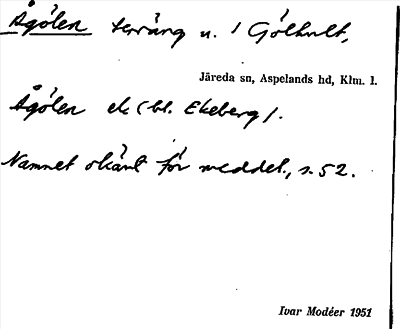 Ågölen terräng n. / Gölhult,
Järeda sn, Aspelands hd, Klm. l.
Ågölen ek (bl. Ekeberg).
Namnet okänt för meddel., s. 52.
Ivar Modéer 1951